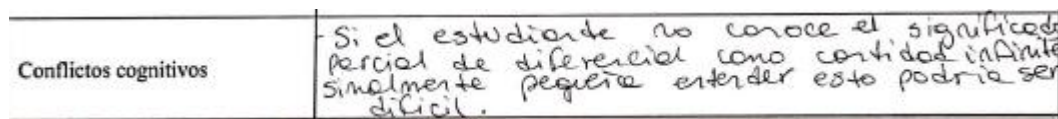 Conflictos cognitivos
- Si el estudiante no conoce el significado
parcial de diferencial como cantidad infinite
simalmente pequeña entender esto podría ser
dificil.